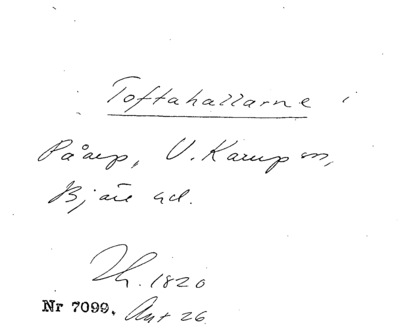 Toftahallarne i
Påarp, V. Karup sn,
Bjäre hd.
Th. 1820
Nr 7099. Ant 26